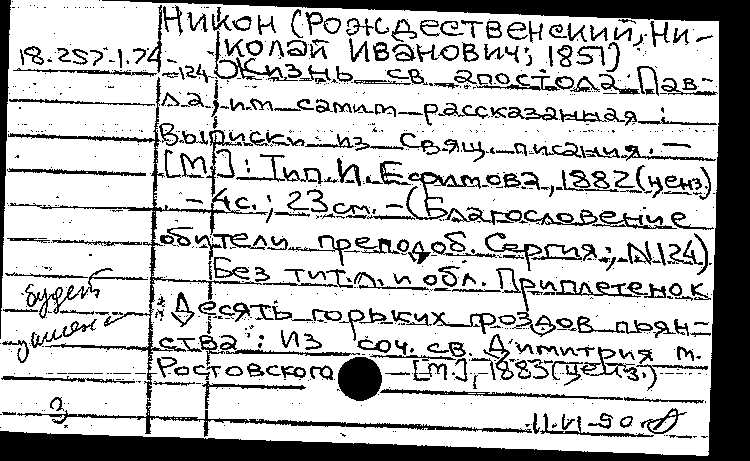 Никон (Рождественский, Ни-
колай Иванович; 1851)
18.257-1.74-
-124 Жизнь св апостола Пав-
ла, им самим рассказанная :
Выписки из Свящ. писания. —
[М.] : Тип. И. Ефимова, 1882 (ценз.)
. - 4с. ; 23 см. - (Благословение
обители преподоб. Сергия ; N 124)
Без тит.л. и обл. Приплетенок
Десять горьких гроздов пьян-
ства : Из соч. св. Димитрия м.
Ростовского — [М.], 1883 (ценз.)
будет
3
11.VI-90